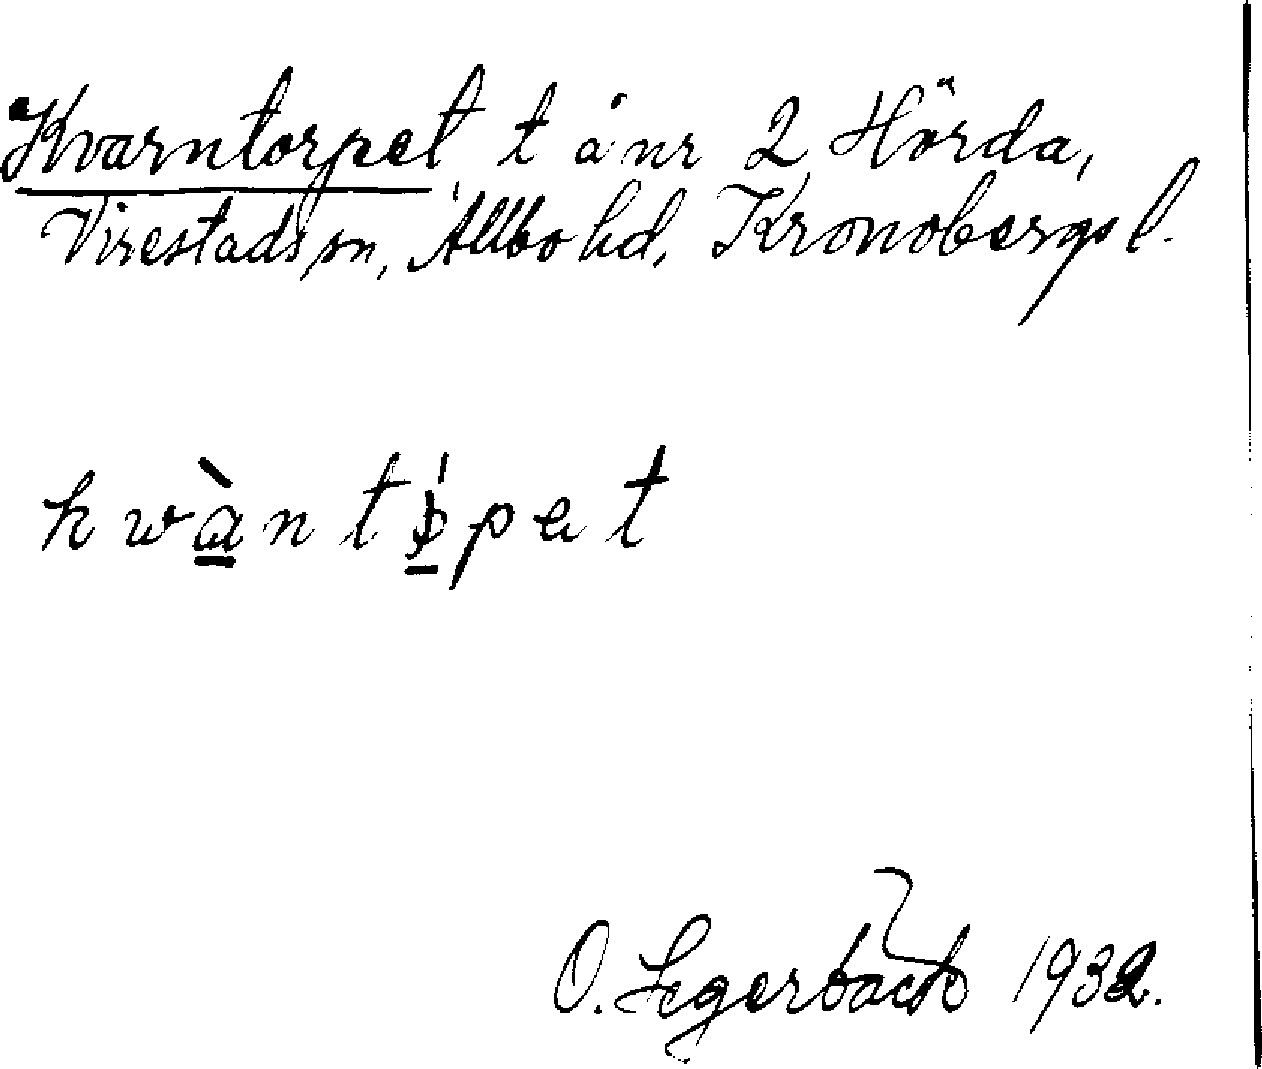 Kvarntorpet t å nr 2 Hörda,
Virestads sn, Allbo hd, Kronobergs l.
O. Segerbäck 1932.